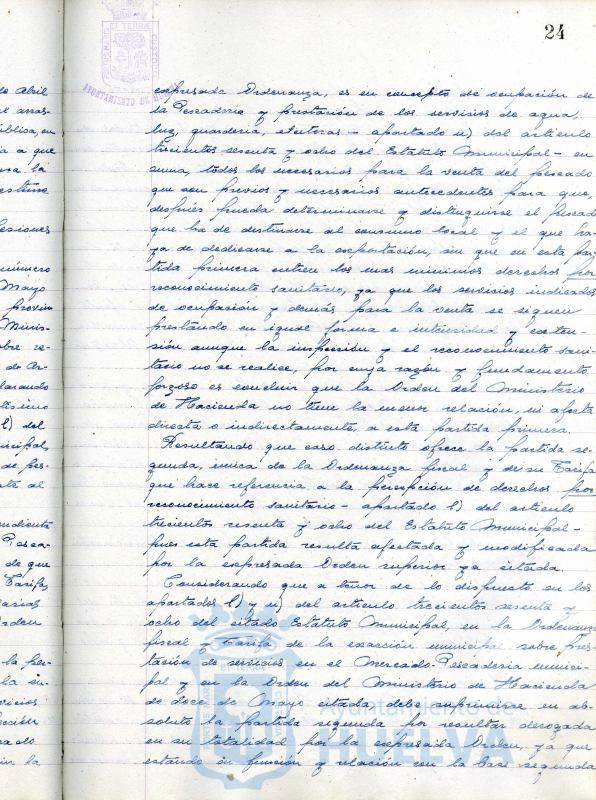 24
expresada Ordenanza, es en concepto de ocupación de
la Pescadería y prestación de los servicios de agua,
luz, guardería, etcétera - apartado u) del artículo
trecientos sesenta y ocho del Estatuto Municipal - en
suma, todos los necesarios para la venta del pescado
que son previos y necesarios antecedentes para que,
después pueda determinarse y distinguirse el pescado
que ha de destinarse al consumo local y el que ha-
ya de dedicarse a la exportación, sin que en esta par-
tida primera entren los mas minimos derechos por
reconocimiento sanitario, ya que los servicios indicados
de ocupación y demás para la venta se siguen
prestando en igual forma e intensidad y exten-
sión aunque la inspección y el reconocimiento sani-
tario no se realice, por cuya razón y fundamento
forzoso es concluir que la Orden del Ministerio
de Hacienda no tiene la menor relación, ni afecta
directa o indirectamente a esta partida primera.
Resultando que caso distinto ofrece la partida se-
gunda, única de la Ordenanza fiscal y de su Tarifa
que hace referencia a la percepción de derechos por
reconocimiento sanitario - apartado l) del artículo
trecientos sesenta y ocho del Estatuto Municipal -
pues esta partida resulta afectada y modificada
por la expresada Orden superior ya citada.
Considerando que a tenor de lo dispuesto en los
apartados l) y u) del artículo trecientos sesenta y
ocho del citado Estatuto Municipal, en la Ordenanza
fiscal y Tarifa de la exacción municipal sobre pres-
tación de servicios en el Mercado-Pescadería munici-
pal y en la Orden del Ministerio de Hacienda
de doce de Mayo citada, debe suprimirse en ab-
soluto la partida segunda por resultar derogada
en su totalidad por la expresada Orden, ya que
estando en función y relación con la base segunda
Ayuntamiento de
HUELVA